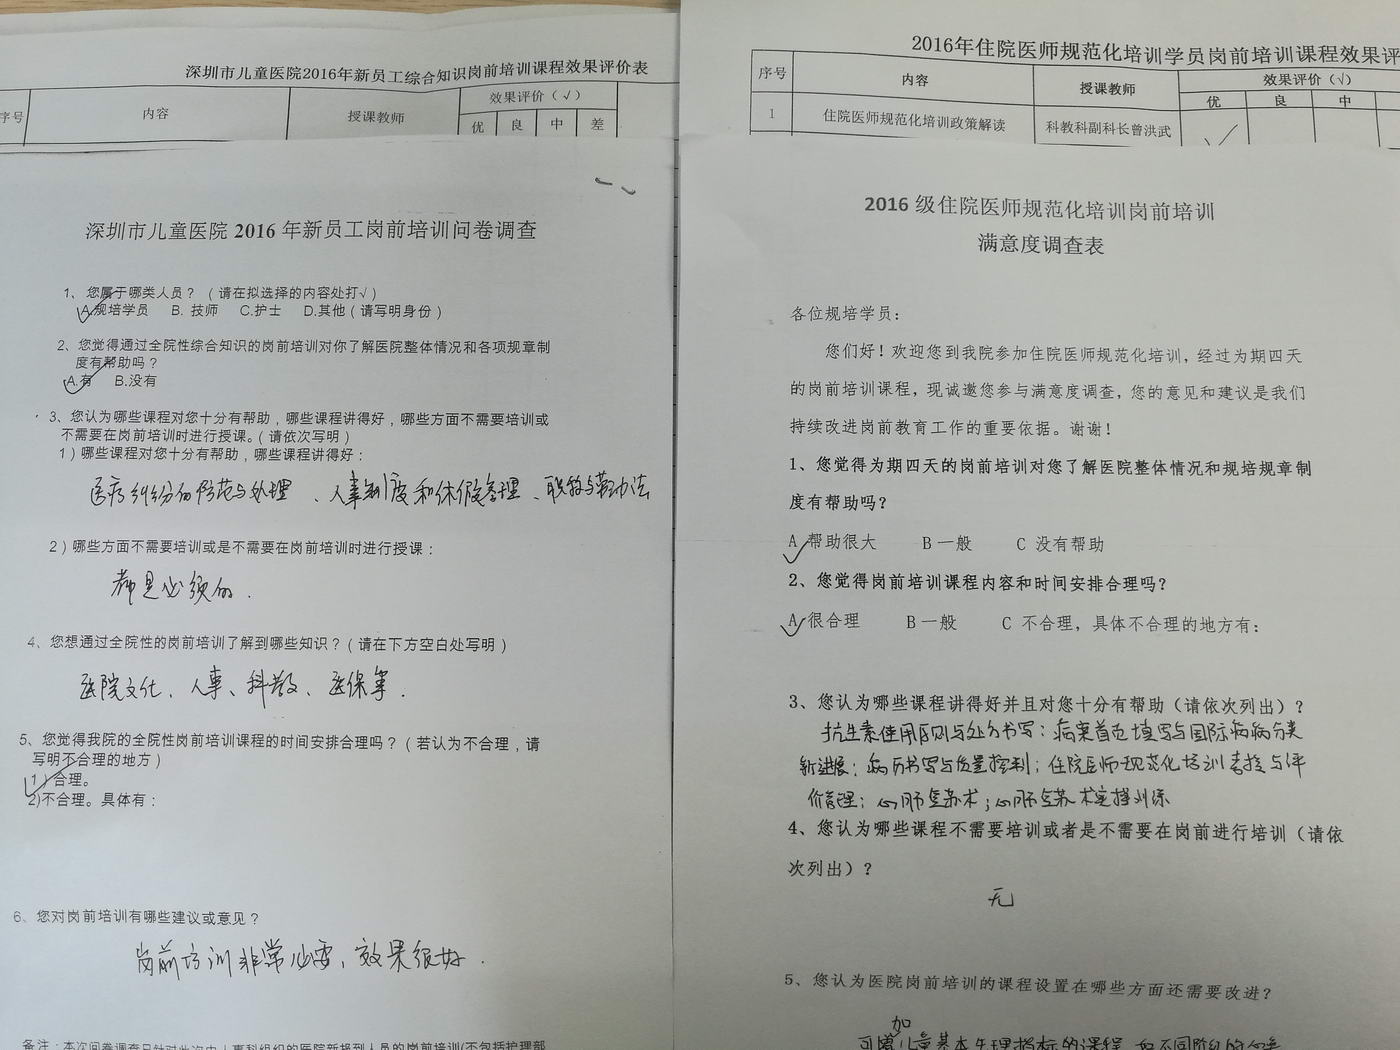 深圳市儿童医院2016年新员工综合知识岗前培训课程效果评价表
序号 内容 授课教师 效果评价（√）
优 良 中 差
深圳市儿童医院 2016 年新员工岗前培训问卷调查
1、您属于哪类人员？（请在拟选择的内容处打√）
A.规培学员 B. 技师 C.护士 D.其他（请写明身份）
2、您觉得通过全院性综合知识的岗前培训对你了解医院整体情况和各项规章制
度有帮助吗？
A.有 B.没有
3、您认为哪些课程对您十分有帮助，哪些课程讲得好，哪些方面不需要培训或
不需要在岗前培训时进行授课。（请依次写明）
1）哪些课程对您十分有帮助，哪些课程讲得好：
医疗纠纷的防范与处理、人事制度和休假管理、职教与办法
2）哪些方面不需要培训或是不需要在岗前培训时进行授课：
都是必须的．
4、您想通过全院性的岗前培训了解到哪些知识？（请在下方空白处写明）
医院文化、人事、科教、医保等．
5、您觉得我院的全院性岗前培训课程的时间安排合理吗？（若认为不合理，请
写明不合理的地方）
1）合理。
2)不合理。具体有：
6、您对岗前培训有哪些建议或意见？
岗前培训非常必要，效果很好．
备注：本次问卷调查只针对此次由人事科组织的医院新报到人员的岗前培训(不包括护理部
2016年住院医师规范化培训学员岗前培训课程效果评
序号 内容 授课教师 效果评价（√）
优 良 中
1 住院医师规范化培训政策解读 科教科副科长曾洪武 √
2016 级住院医师规范化培训岗前培训
满意度调查表
各位规培学员：
您们好！欢迎您到我院参加住院医师规范化培训，经过为期四天
的岗前培训课程，现诚邀您参与满意度调查，您的意见和建议是我们
持续改进岗前教育工作的重要依据。谢谢！
1、您觉得为期四天的岗前培训对您了解医院整体情况和规培规章制
度有帮助吗？
A 帮助很大 B 一般 C 没有帮助
2、您觉得岗前培训课程内容和时间安排合理吗？
A 很合理 B 一般 C 不合理，具体不合理的地方有：
3、您认为哪些课程讲得好并且对您十分有帮助（请依次列出）？
抗生素使用原则与处方书写；病案首页填写与国际疾病分类
新进展；病历书写与质量控制；住院医师规范化培训考核与评
价管理；心肺复苏术；心肺复苏术实操训练
4、您认为哪些课程不需要培训或者是不需要在岗前进行培训（请依
次列出）？
无
5、您认为医院岗前培训的课程设置在哪些方面还需要改进？
可增加儿童基本生理指标的课程，如不同阶段的